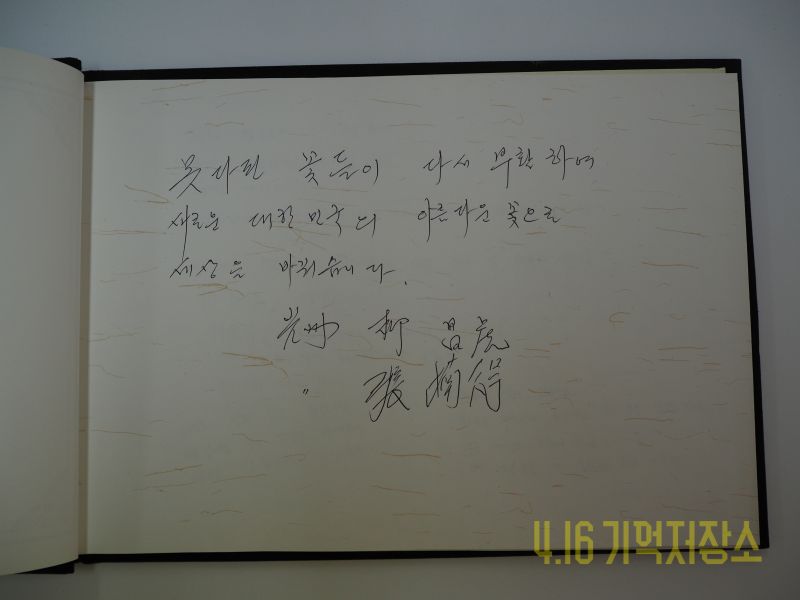 못다핀 꽃들이 다시 부활하여
새로운 대한민국의 아름다운 꽃으로
세상은 바뀌습니다.
光州 柳 昌虎
〃 張
4.16 기억저장소